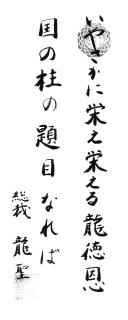 いやさかに栄え栄える龍徳恩
国の柱の題目なれば
総裁 龍聖